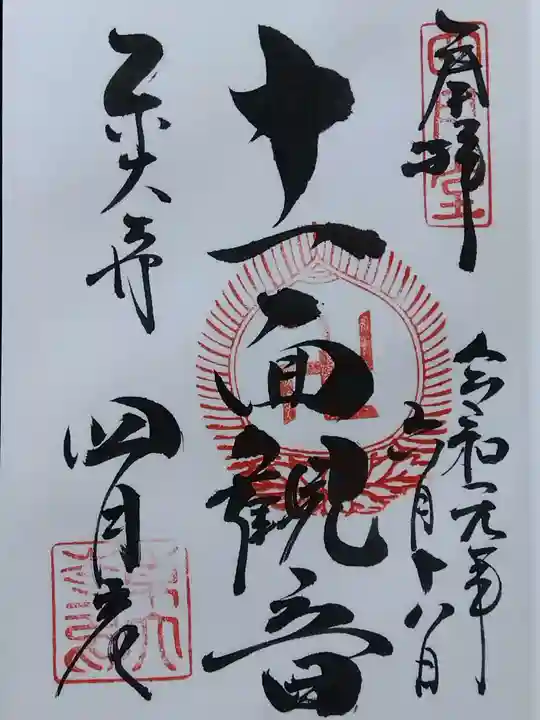 奉拝
令和元年
六月十八日
十一面観音
東大寺
四月堂